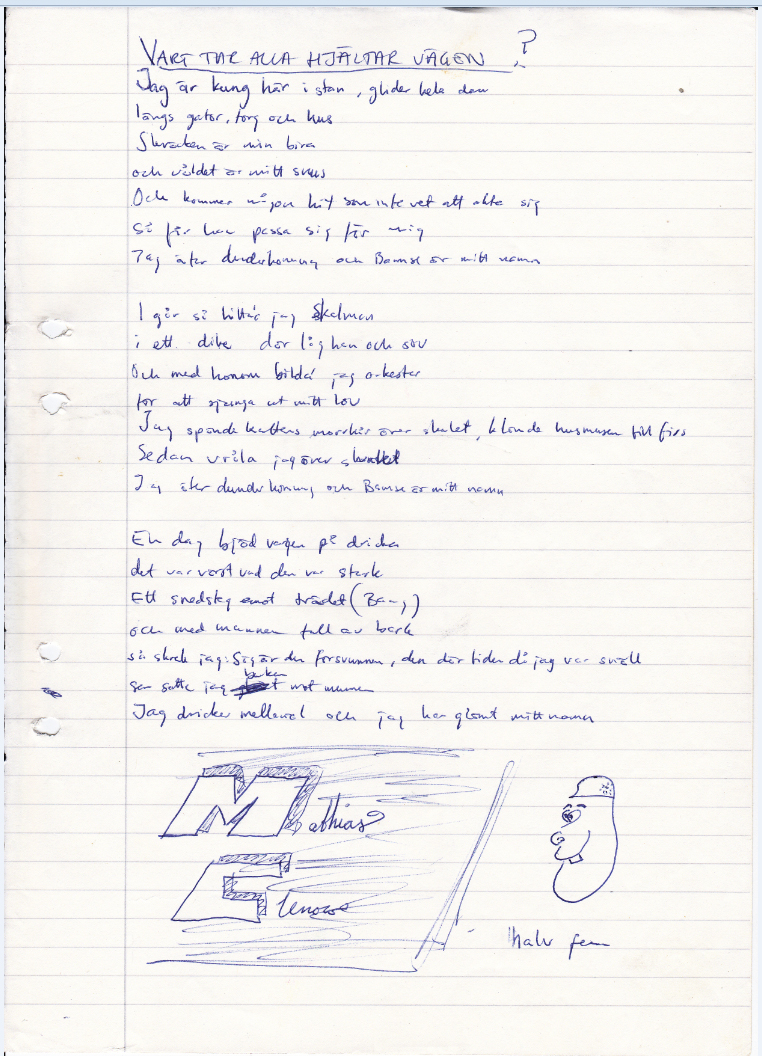 VART TAR ALLA HJÄLTAR VÄGEN ?
Jag är kung här i stan, glider hela dan
längs gator, torg och hus
Skräcken är min bira
och våldet är mitt snus
Och kommer någon hit som inte vet att akta sig
så får han passa sig för mig
Jag äter dunderhonung och Bamse är mitt namn
I går så hitta' jag Skalman
i ett dike där låg han och sov
Och med honom bilda' jag orkester
för att sjunga ut mitt lov
Jag spände kattens morrhår över skalet, klonde husmusen till firs
Sedan vråla jag över skrället
Jag äter dunderhonung och Bamse är mitt namn
En dag bjöd vargen på dricka
det var värst vad den var stark
Ett snedsteg emot trädet (Bang)
och med munnen full av bark
så skrek jag: Sig är den försvunnen, den där tiden då jag var snäll
sen satte jag bärken mot munnen
Jag dricker mellanöl och jag har glömt mitt namn
Mathias
G
halv fem